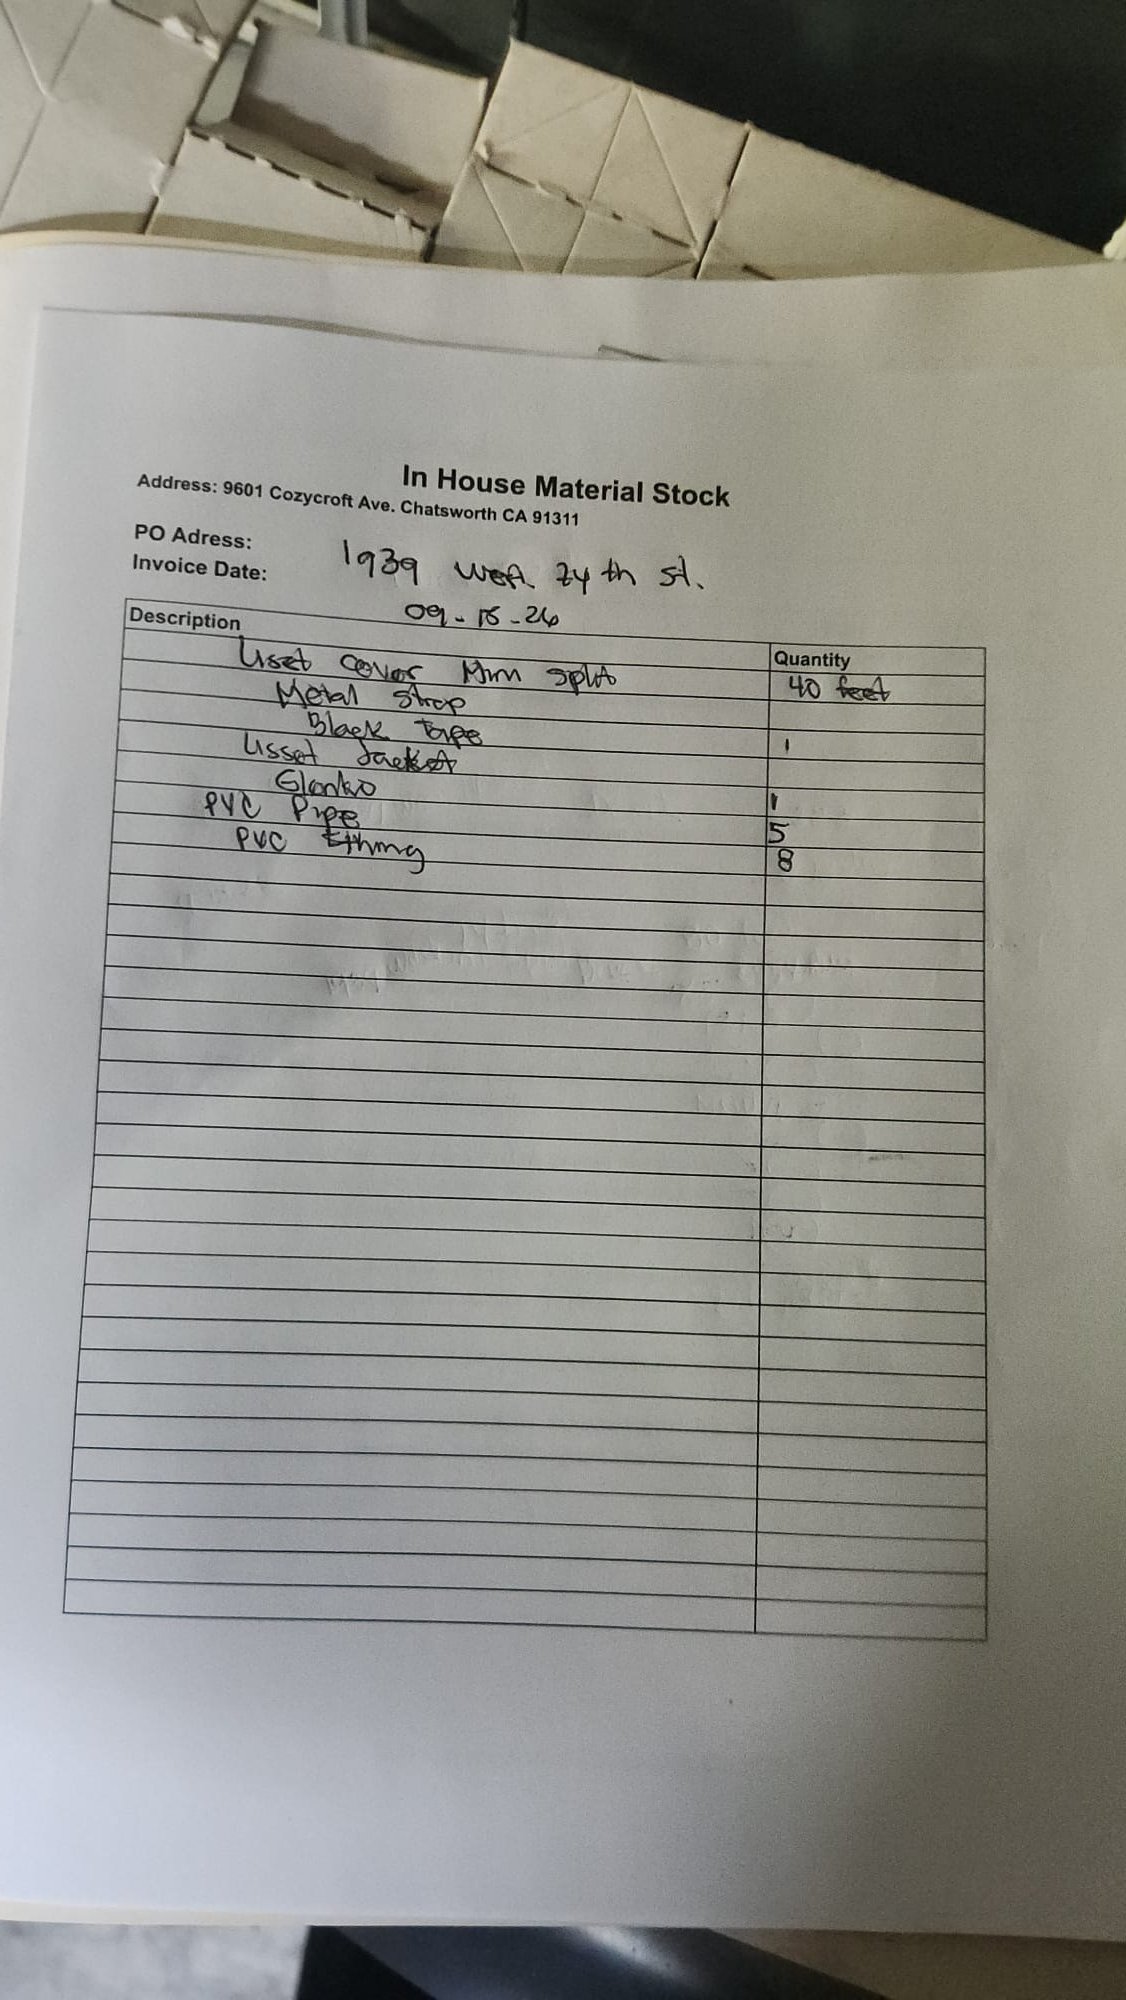 In House Material Stock
Address: 9601 Cozycroft Ave. Chatsworth CA 91311
PO Adress: 1939 West 24th st.
Invoice Date: 09-15-26
Description Quantity
Liset cover Mini split 40 feet
Metal Strap
Black Tape 1
Lisset Jacket
1
PVC Pipe 5
PVC 8